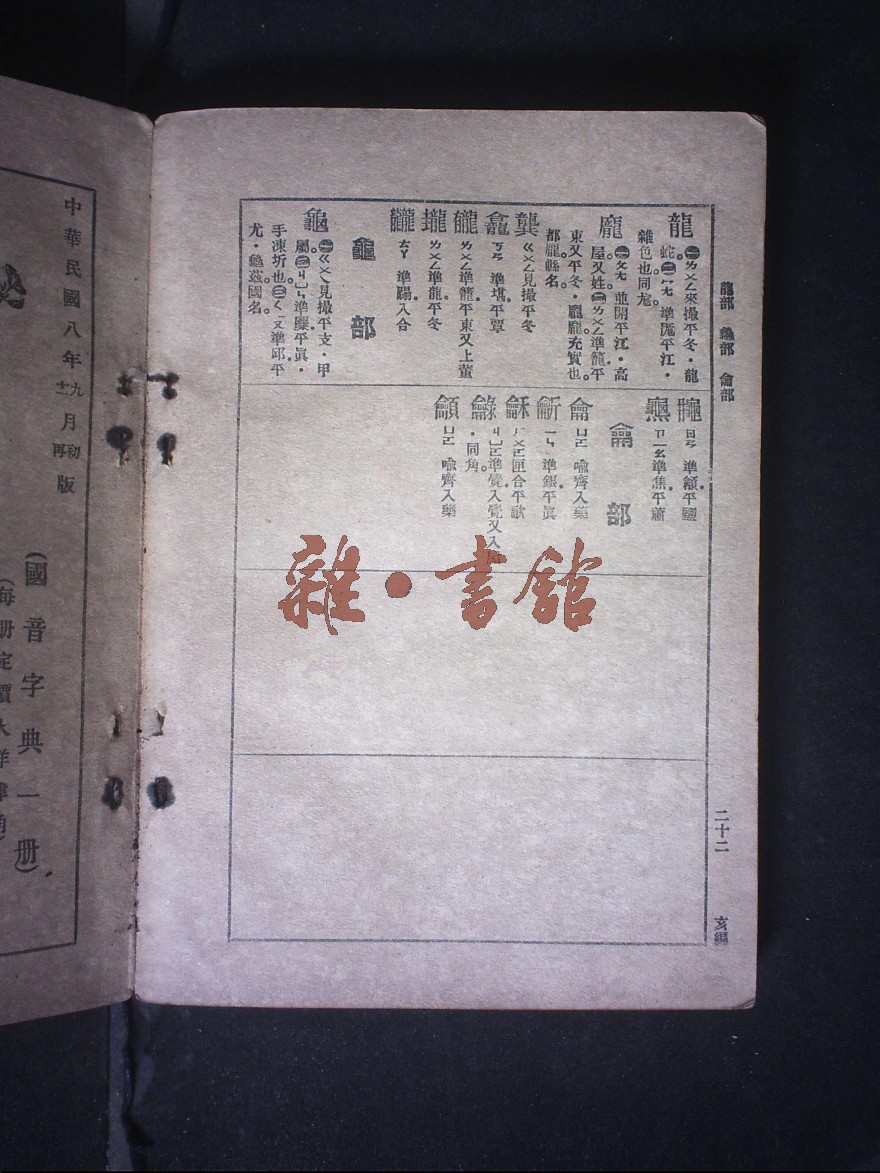 龍部 龜部 龠部
龍 ㊀ㄌㄨㄥ來撮平冬・龍
蛇。㊁ㄆㄤ 準厖平江・
雜色也。同尨。
龐 ㊀ㄆㄤ 並開平江・高
屋又姓。㊁ㄌㄨㄥ準籠平
東又平冬・龐龐充實也。
都龐縣名
龔 ㄍㄨㄥ見撮平冬
龕 ㄎㄢ 準堪平覃
ㄌㄨㄥ準籠平東又上董
ㄌㄨㄥ準龍平冬
ㄊㄚ 準蹋入合
龜部
龜 ㊀ㄍㄨㄟ見撮平支・甲
屬。㊁ㄐㄩㄣ準麇平眞・
手凍坼也。㊂ㄑㄧㄡ準邱平
尤・龜茲國名。
ㄖㄢ 準髥平鹽
ㄗㄧㄠ準焦平蕭
龠部
龠 ㄩㄛ 喩齊入藥
ㄧㄣ 準銀平眞
龢 ㄏㄨㄛ匣合平歌
ㄐㄩㄛ準覺入覺又入
・同角。
龥 ㄩㄛ 喩齊入藥
二十二
亥編
雜・書館
中華民國八年九月初版
十二月再版
(國音字典一册)
每册定價大洋